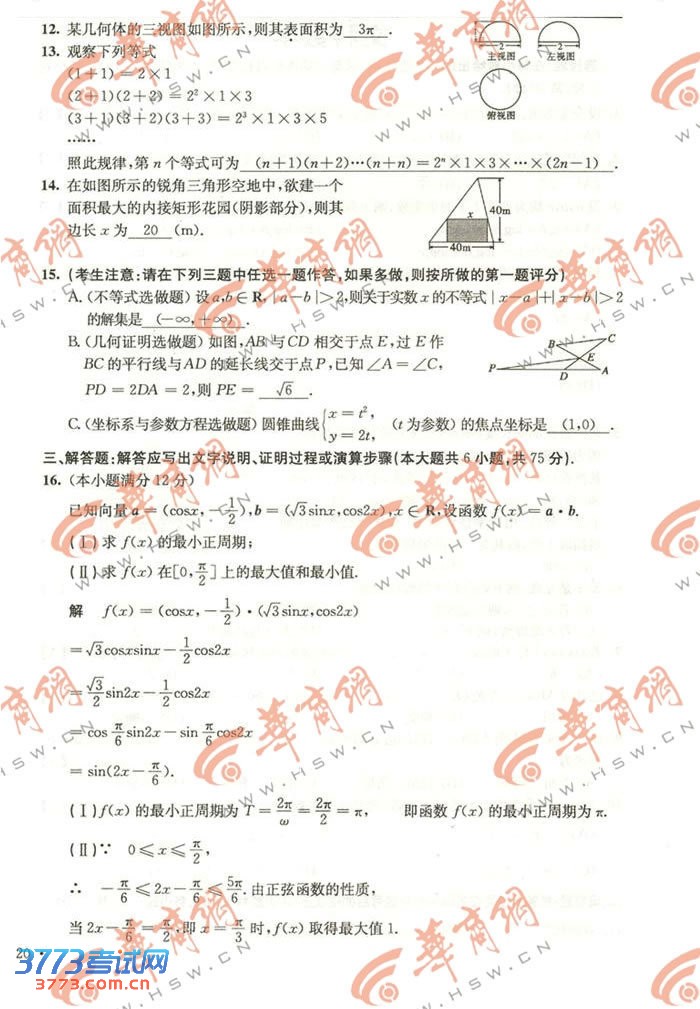 12. 某几何体的三视图如图所示,则其表面积为 3π .
2 2
主视图 左视图
俯视图
13. 观察下列等式
(1+1)=2×1
(2+1)(2+2)=2²×1×3
(3+1)(3+2)(3+3)=2³×1×3×5
……
照此规律,第 n 个等式可为 (n+1)(n+2)…(n+n)=2ⁿ×1×3×…×(2n-1) .
14. 在如图所示的锐角三角形空地中,欲建一个
面积最大的内接矩形花园(阴影部分),则其
边长 x 为 20 (m).
x
40m
40m
15. (考生注意:请在下列三题中任选一题作答,如果多做,则按所做的第一题评分)
A.(不等式选做题) 设 a,b∈R,|a-b|>2,则关于实数 x 的不等式|x-a|+|x-b|>2
的解集是 (-∞,+∞) .
B.(几何证明选做题) 如图,AB 与 CD 相交于点 E,过 E 作
BC 的平行线与 AD 的延长线交于点 P,已知∠A=∠C,
PD=2DA=2,则 PE= √6 .
B C
E
P D A
C.(坐标系与参数方程选做题) 圆锥曲线{x=t², y=2t, (t 为参数) 的焦点坐标是 (1,0) .
三、解答题:解答应写出文字说明、证明过程或演算步骤(本大题共 6 小题,共 75 分).
16. (本小题满分 12 分)
已知向量 a=(cosx,-1/2),b=(√3sinx,cos2x),x∈R,设函数 f(x)=a·b.
(Ⅰ) 求 f(x) 的最小正周期;
(Ⅱ) 求 f(x) 在[0,π/2]上的最大值和最小值.
解 f(x)=(cosx,-1/2)·(√3sinx,cos2x)
=√3cosxsinx-1/2cos2x
=√3/2sin2x-1/2cos2x
=cos π/6 sin2x-sin π/6 cos2x
=sin(2x-π/6).
(Ⅰ)f(x) 的最小正周期为 T=2π/ω=2π/2=π, 即函数 f(x) 的最小正周期为 π.
(Ⅱ)∵ 0≤x≤π/2,
∴ -π/6≤2x-π/6≤5π/6.由正弦函数的性质,
当 2x-π/6=π/2,即 x=π/3 时,f(x) 取得最大值 1.
20
3773考试网
3773.com.cn
华商網
WWW.HSW.CN